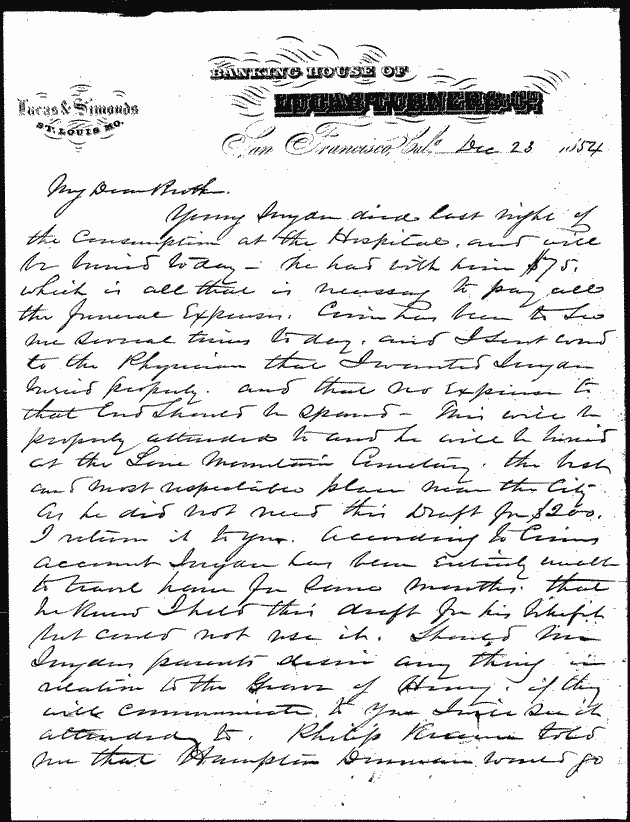 BANKING HOUSE OF
Lucas & Simonds
LUCAS TURNER & CO.
ST. LOUIS MO.
San Francisco, Cal. Dec 23 1854
My Dear Brother.
Young Snyder died last night of
the Consumption at the Hospital, and will
be buried today – he had with him $75.
which is all that is necessary to pay all
the Funeral Expenses. has been to see
me several times today, and I sent word
to the Physician that I wanted Snyder
buried properly. and that no Expense to
that End should be spared – This will be
properly attended to and he will be buried
at the Lone Mountain Cemetery. the best
and most respectable place near the City
As he did not need this Draft for $200.
I return it to you. According to
account Snyder has been Entirely unable
to travel home for some months. that
he knew I held this draft for his benefit
but could not use it. Should
Snyders parents desire any thing in
relation to the Grave of Henry, if they
will communicate to you I will see it
attended to. Philip told
me that Hampton would go